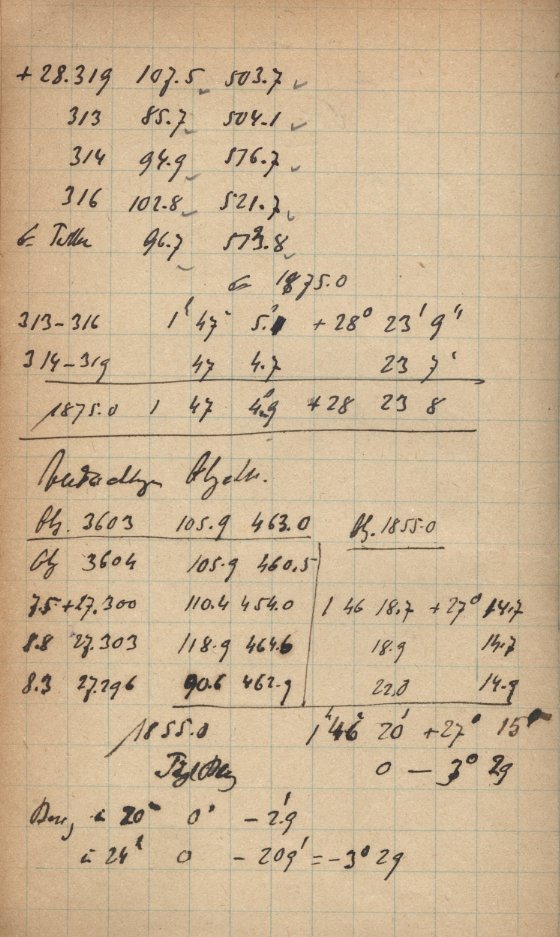 + 28.319 107.5 503.7
313 85.7 504.1
314 94.9 576.7
316 102.8 521.7
96.7
1875.0
313-316 1ʰ 47 5. + 28° 23' 9"
314-319 47 4.7 23 7"
1875.0 1 47 4.9 +28 23 8
Obj. 3603 105.9 463.0 Obj. 1855.0
Obj 3604 105.9 460.5
7.5 +27.300 110.4 454.0 1 46 18.7 +27° 14.7
8.8 27.303 118.9 464.6 18.9 14.7
8.3 27.296 90.6 462.9 22.0 14.9
1855.0 1ʰ 46 20 +27° 15
0 — 3° 29
20 0 — 2.9
24 0 - 209' = -3° 29